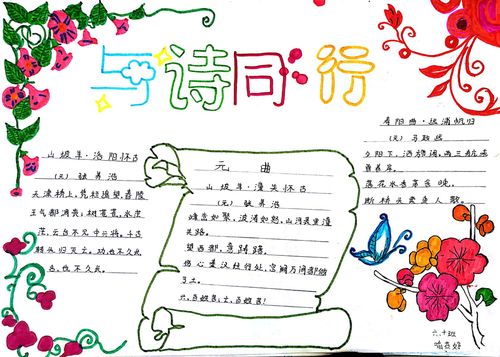 与诗同行
山坡羊·洛阳怀古
(元) 张养浩
天津桥上,凭栏遥望,舂陵
王气都凋丧。树苍苍,水茫
茫,云台不见中兴将。千古
转头归灭亡。功,也不久长;
名,也不久长。
元 曲
山坡羊·潼关怀古
(元) 张养浩
峰峦如聚,波涛如怒,山河表里潼
关路。
望西都,意踌躇。
伤心秦汉经行处,宫阙万间都做
了土。
兴,百姓苦;亡,百姓苦!
寿阳曲·远浦帆归
(元) 马致远
夕阳下,酒旆闲,两三航未
曾着岸。
落花水香茅舍晚,
断桥头卖鱼人散。
六、十班